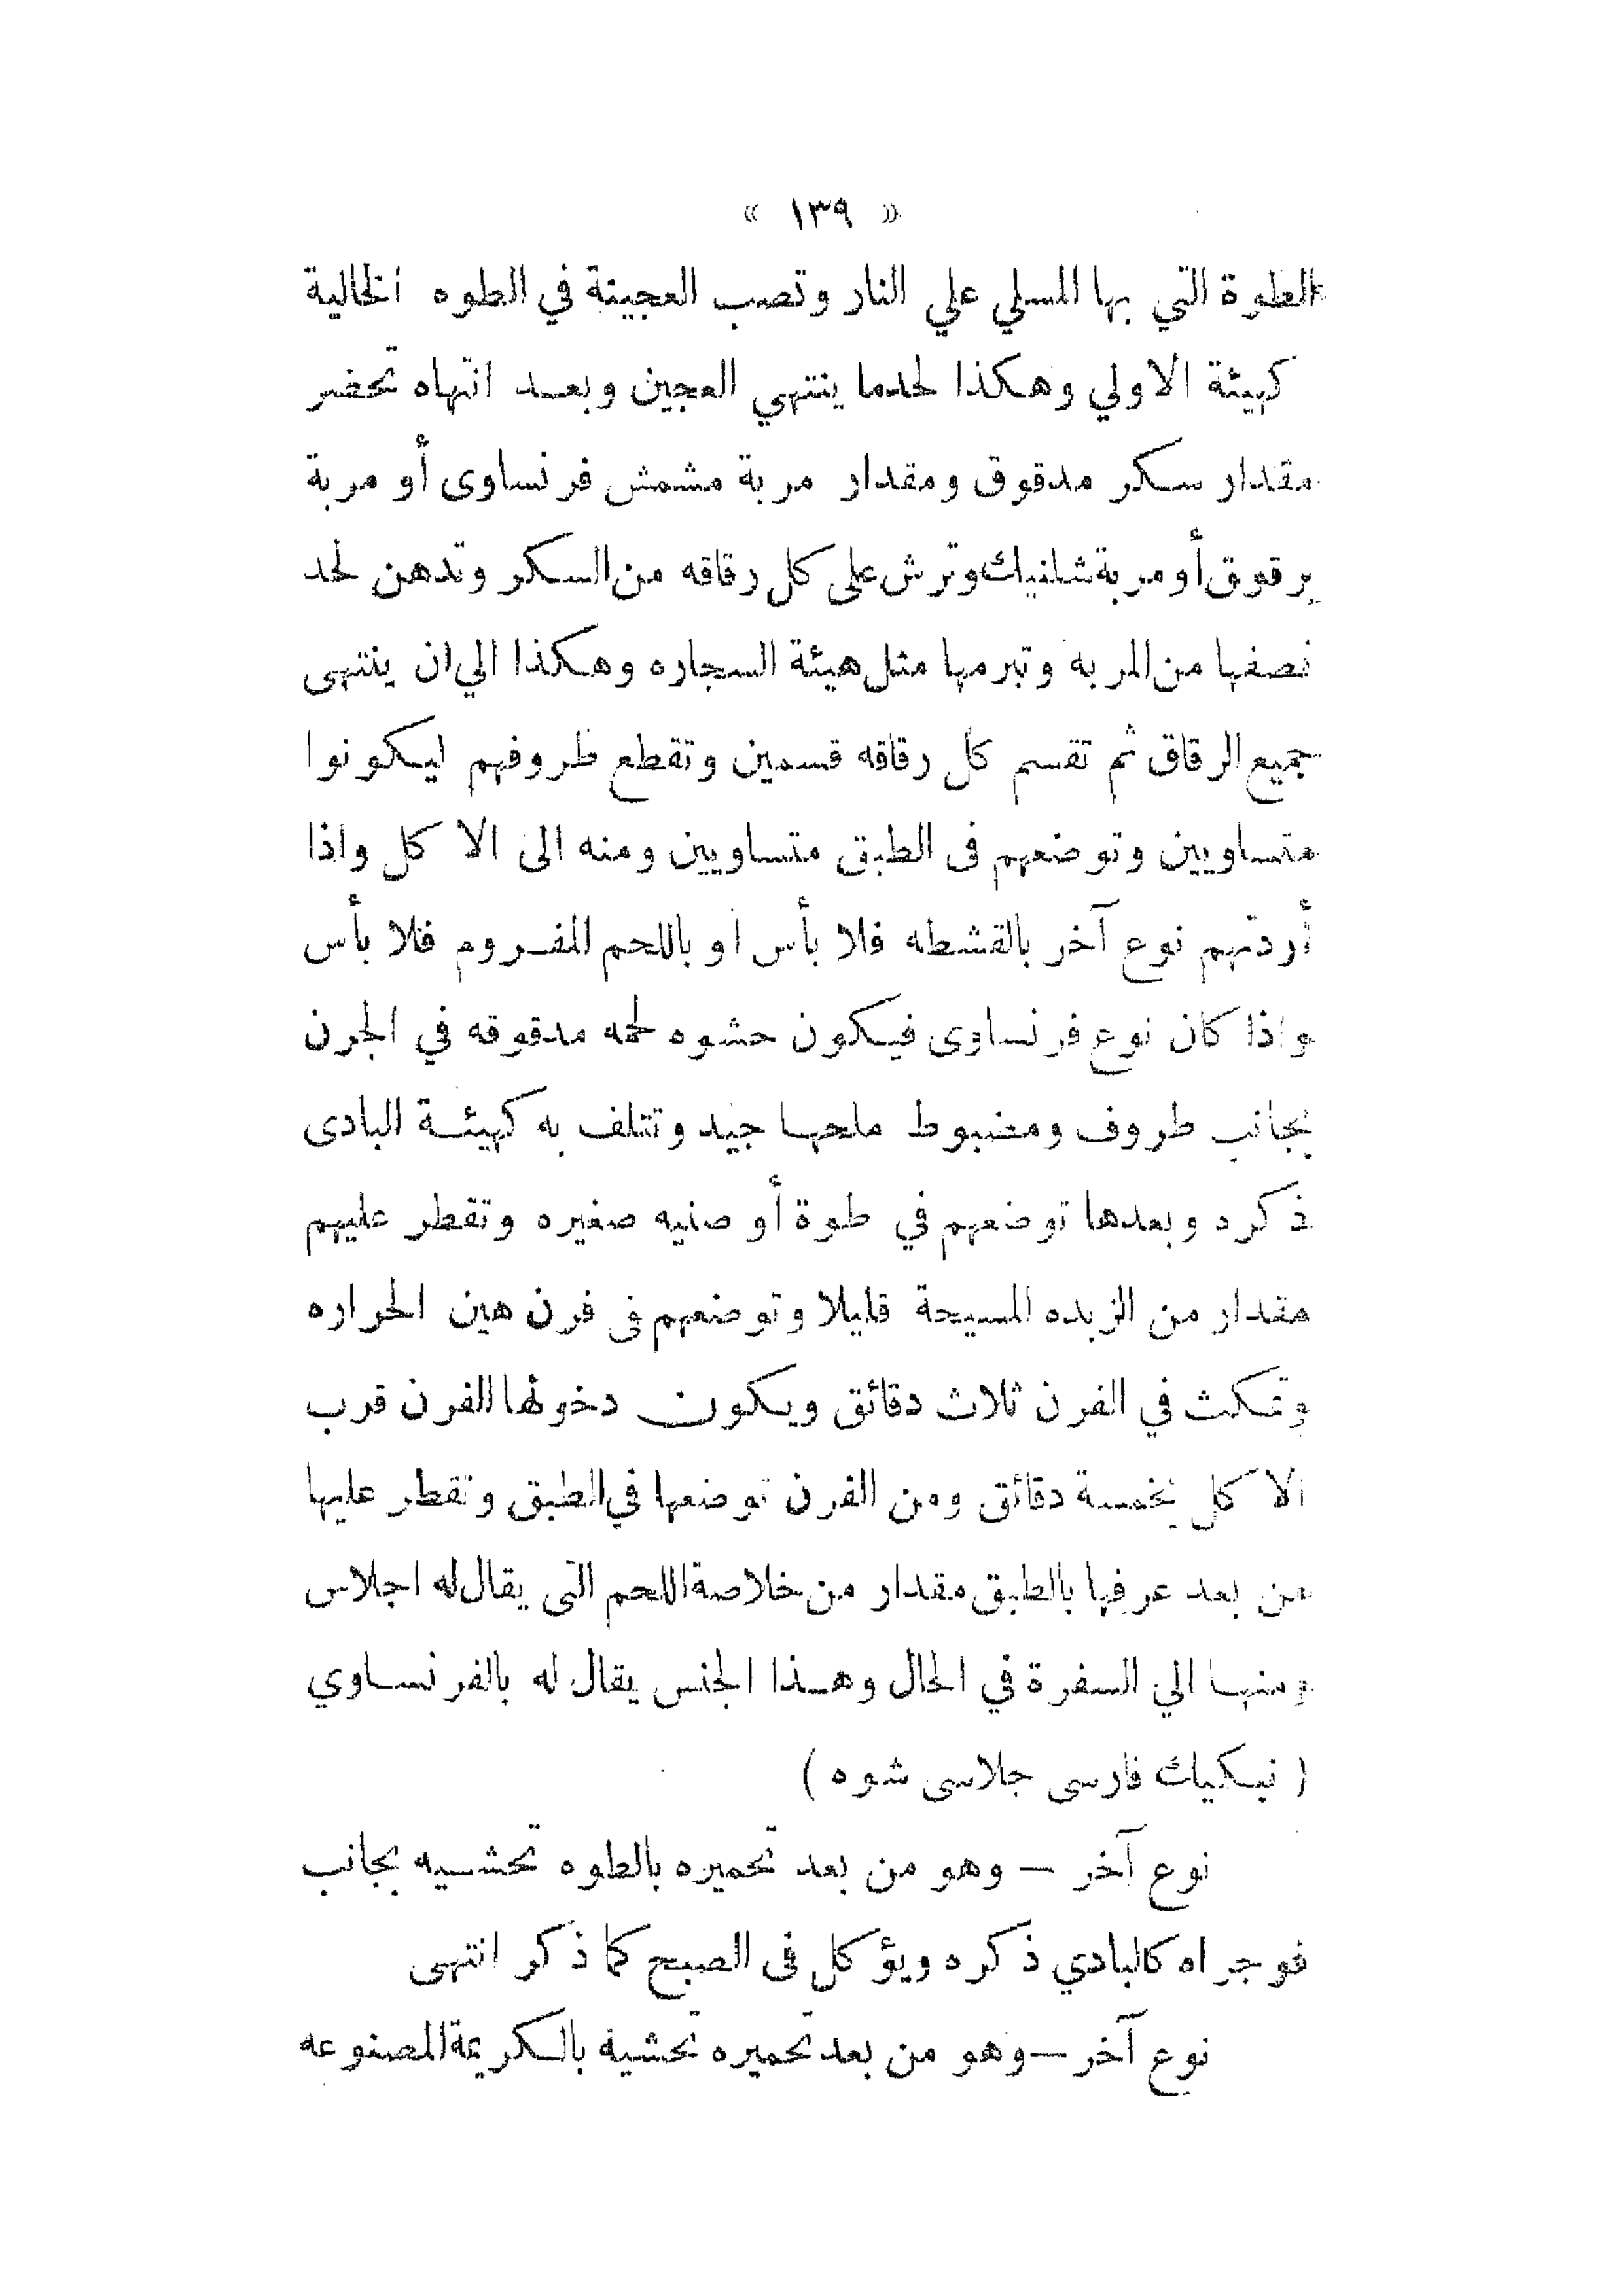 « ١٣٩ »
الطوة التي بها المسلي علي النار وتصب العجينة في الطوه الخالية
كهيئة الاولي وهكذا لحدما ينتهي العجين وبعد انتهاه تحضر
مقدار سكر مدقوق ومقدار مربة مشمش فرنساوى أو مربة
برقوق أو مربة شلنيك وترش على كل رقاقه من السكر وتدهن لحد
نصفها من المربه وتبرمها مثل هيئة السجاره وهكذا الي ان ينتهى
جميع الرقاق ثم تقسم كل رقاقه قسمين وتقطع طروفهم ليكونوا
متساويين وتوضعهم فى الطبق متساويين ومنه الى الاكل واذا
أردتهم نوع آخر بالقشطه فلا بأس او باللحم المفروم فلا بأس
واذا كان نوع فرنساوى فيكون حشوه لحمه مدقوقه في الجرن
بجانب طروف ومضبوط ملحها جيد وتتلف به كهيئة البادى
ذكره وبعدها توضعهم في طوة أو صنيه صغيره وتقطر عليهم
مقدار من الزبده المسيحة قليلا وتوضعهم فى فرن هين الحراره
وتمكث في الفرن ثلاث دقائق ويكون دخولها الفرن قرب
الاكل بخمسة دقائق ومن الفرن توضعها في الطبق وتقطر عليها
من بعد عرفها بالطبق مقدار من خلاصة اللحم التى يقال له اجلاس
ومنها الي السفرة في الحال وهذا الجنس يقال له بالفرنساوي
( نيكيك فارسى جلاسى شوه )
نوع آخر — وهو من بعد تحميره بالطوه تحشيه بجانب
فوجراه كالبادي ذكره ويؤكل فى الصبح كما ذكر انتهى
نوع آخر — وهو من بعد تحميره تحشية بالكريمة المصنوعه